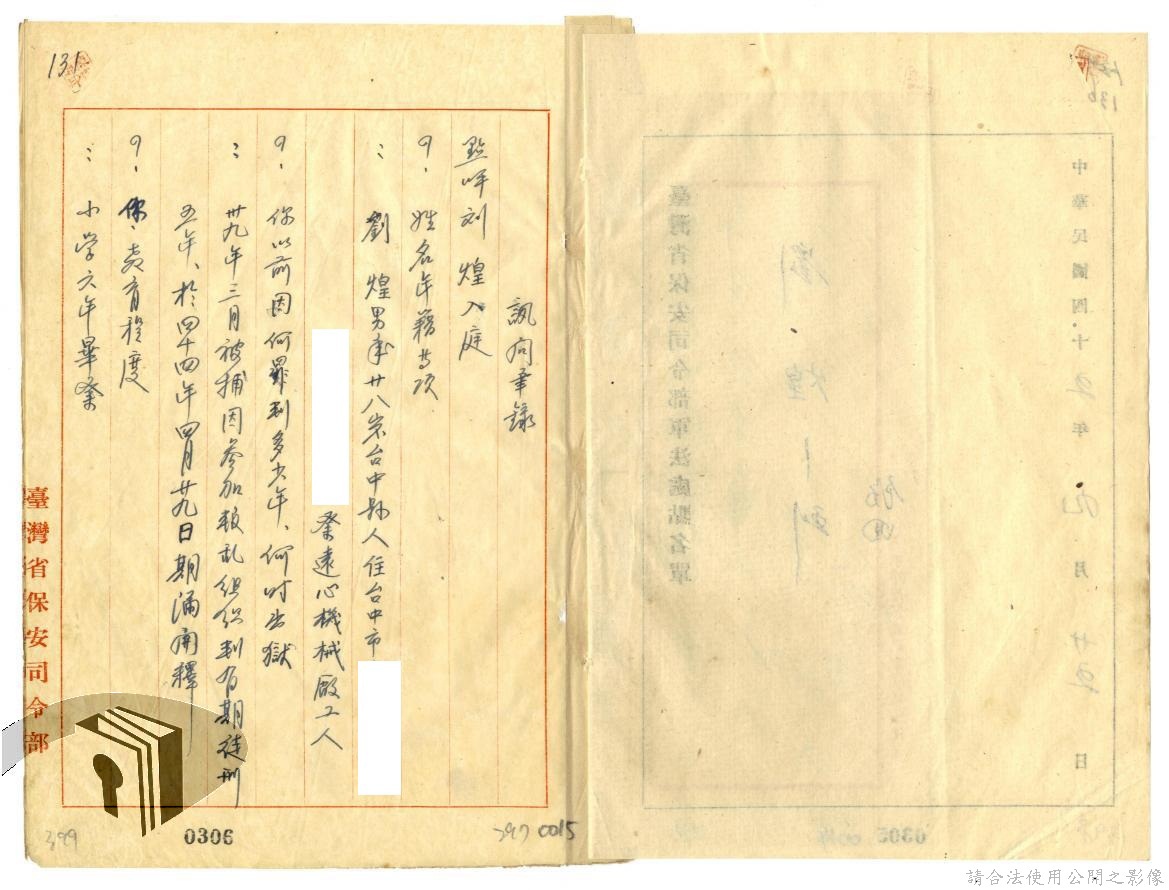 中華民國四十五年九月廿五日
臺灣省保安司令部軍法處點名單
劉煌
130
131
訊問筆錄
點呼刘煌入庭
問、姓名年籍等項
：劉煌男年廿八岁台中縣人住台中市
業遠心機械廠工人
問、你以前因何罪判多少年、何时出獄
：卅九年三月被捕因參加叛乱組织判有期徒刑
五年、於四十四年四月廿九日期滿開釋
問、你、教育程度
：小学六年畢業
臺灣省保安司令部
399
0306
397
0015
0305
請合法使用公開之影像